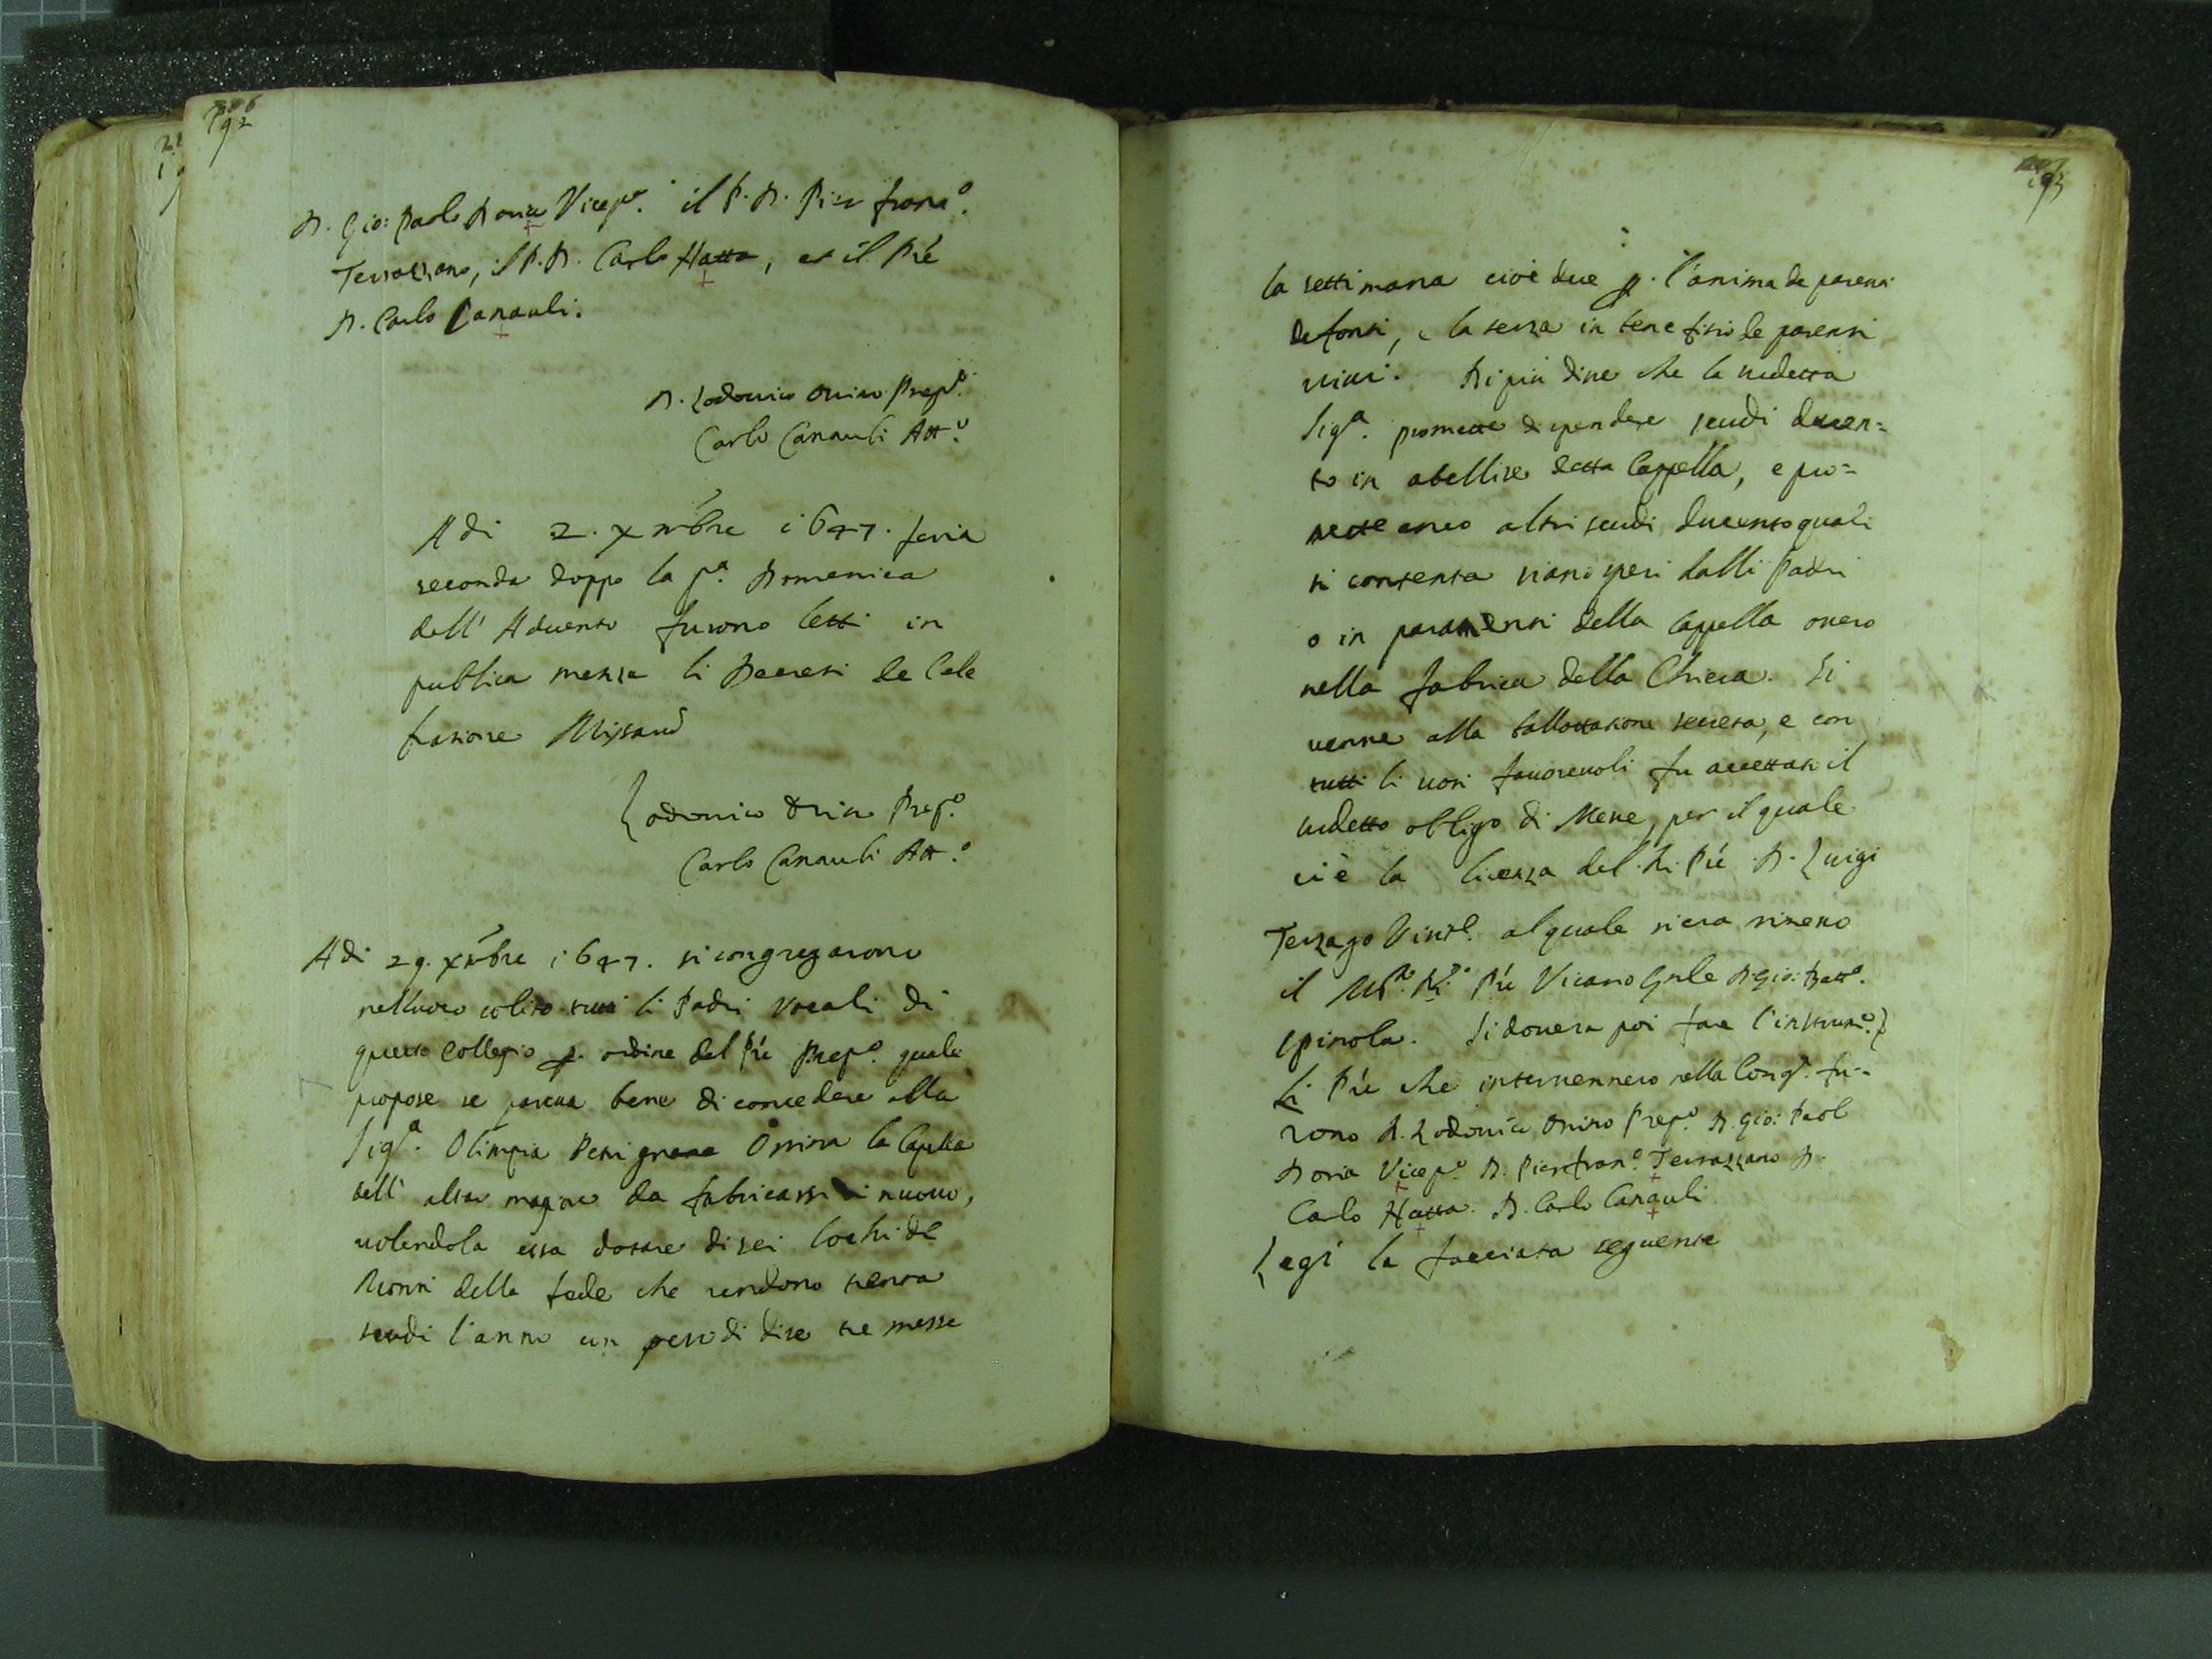 192
D. Gio: Paolo Doria Vicep.º il P. D. Pier franc.º
Terrazzano, il P. D. Carlo Hatta, et il Prê
D. Carlo Canauli.
D. Lodouico Orsino Prep.º
Carlo Canauli Att.º
Adi 2. Xmbre 1647. feria
seconda doppo la p.ª Domenica
dell' Aduento furono letti in
publica mensa li Decreti de Cele
bratione Missarũ
Lodouico Orsino Prep.º
Carlo Canauli Att.º
Adi 29. Xmbre 1647. si congregarono
nel luoco solito tutti li Padri Vocali di
questo Collegio p. ordine del Prê Prep.º quale
propose se pareua bene di concedere alla
Sig.ª Olimpia Orsina la Capella
dell' altar magiore da fabricarsi di nuouo,
uolendola essa dotare di sei lochi de
Monti della fede che rendono trenta
scudi l'anno con peso di dire tre messe
193
la settimana cioè due p. l'anima de parenti
defonti, e la terza in beneficio de parenti
uiui. Di più disse che la sudetta
Sig.ª promette di spendere scudi ducen=
to in abellire detta Cappella, e pro=
mette anco altri scudi ducento quali
si contenta siano spesi dalli Padri
o in paramenti della Cappella ouero
nella fabrica della Chiesa. Si
uenne alla ballottatione secreta, e con
tutti li uoti fauoreuoli fu accettato il
sudetto obligo di Messe, per il quale
ui è la licenza del R. Prê D. Luigi
Terzago Visit.e al quale si era rimesso
il M.to R.do Prê Vicario Gnle D. Gio: Batt.º
Spinola. Si douerà poi fare l'instrum.º
Li Prê che interuennero nella Cong.e fu=
rono D. Lodouico Orsino Prep.º D. Gio: Paol
Doria Vicep.º D. Pierfran.º Terrazzano D.
Carlo Hatta. D. Carlo Canauli
Legi la facciata seguente